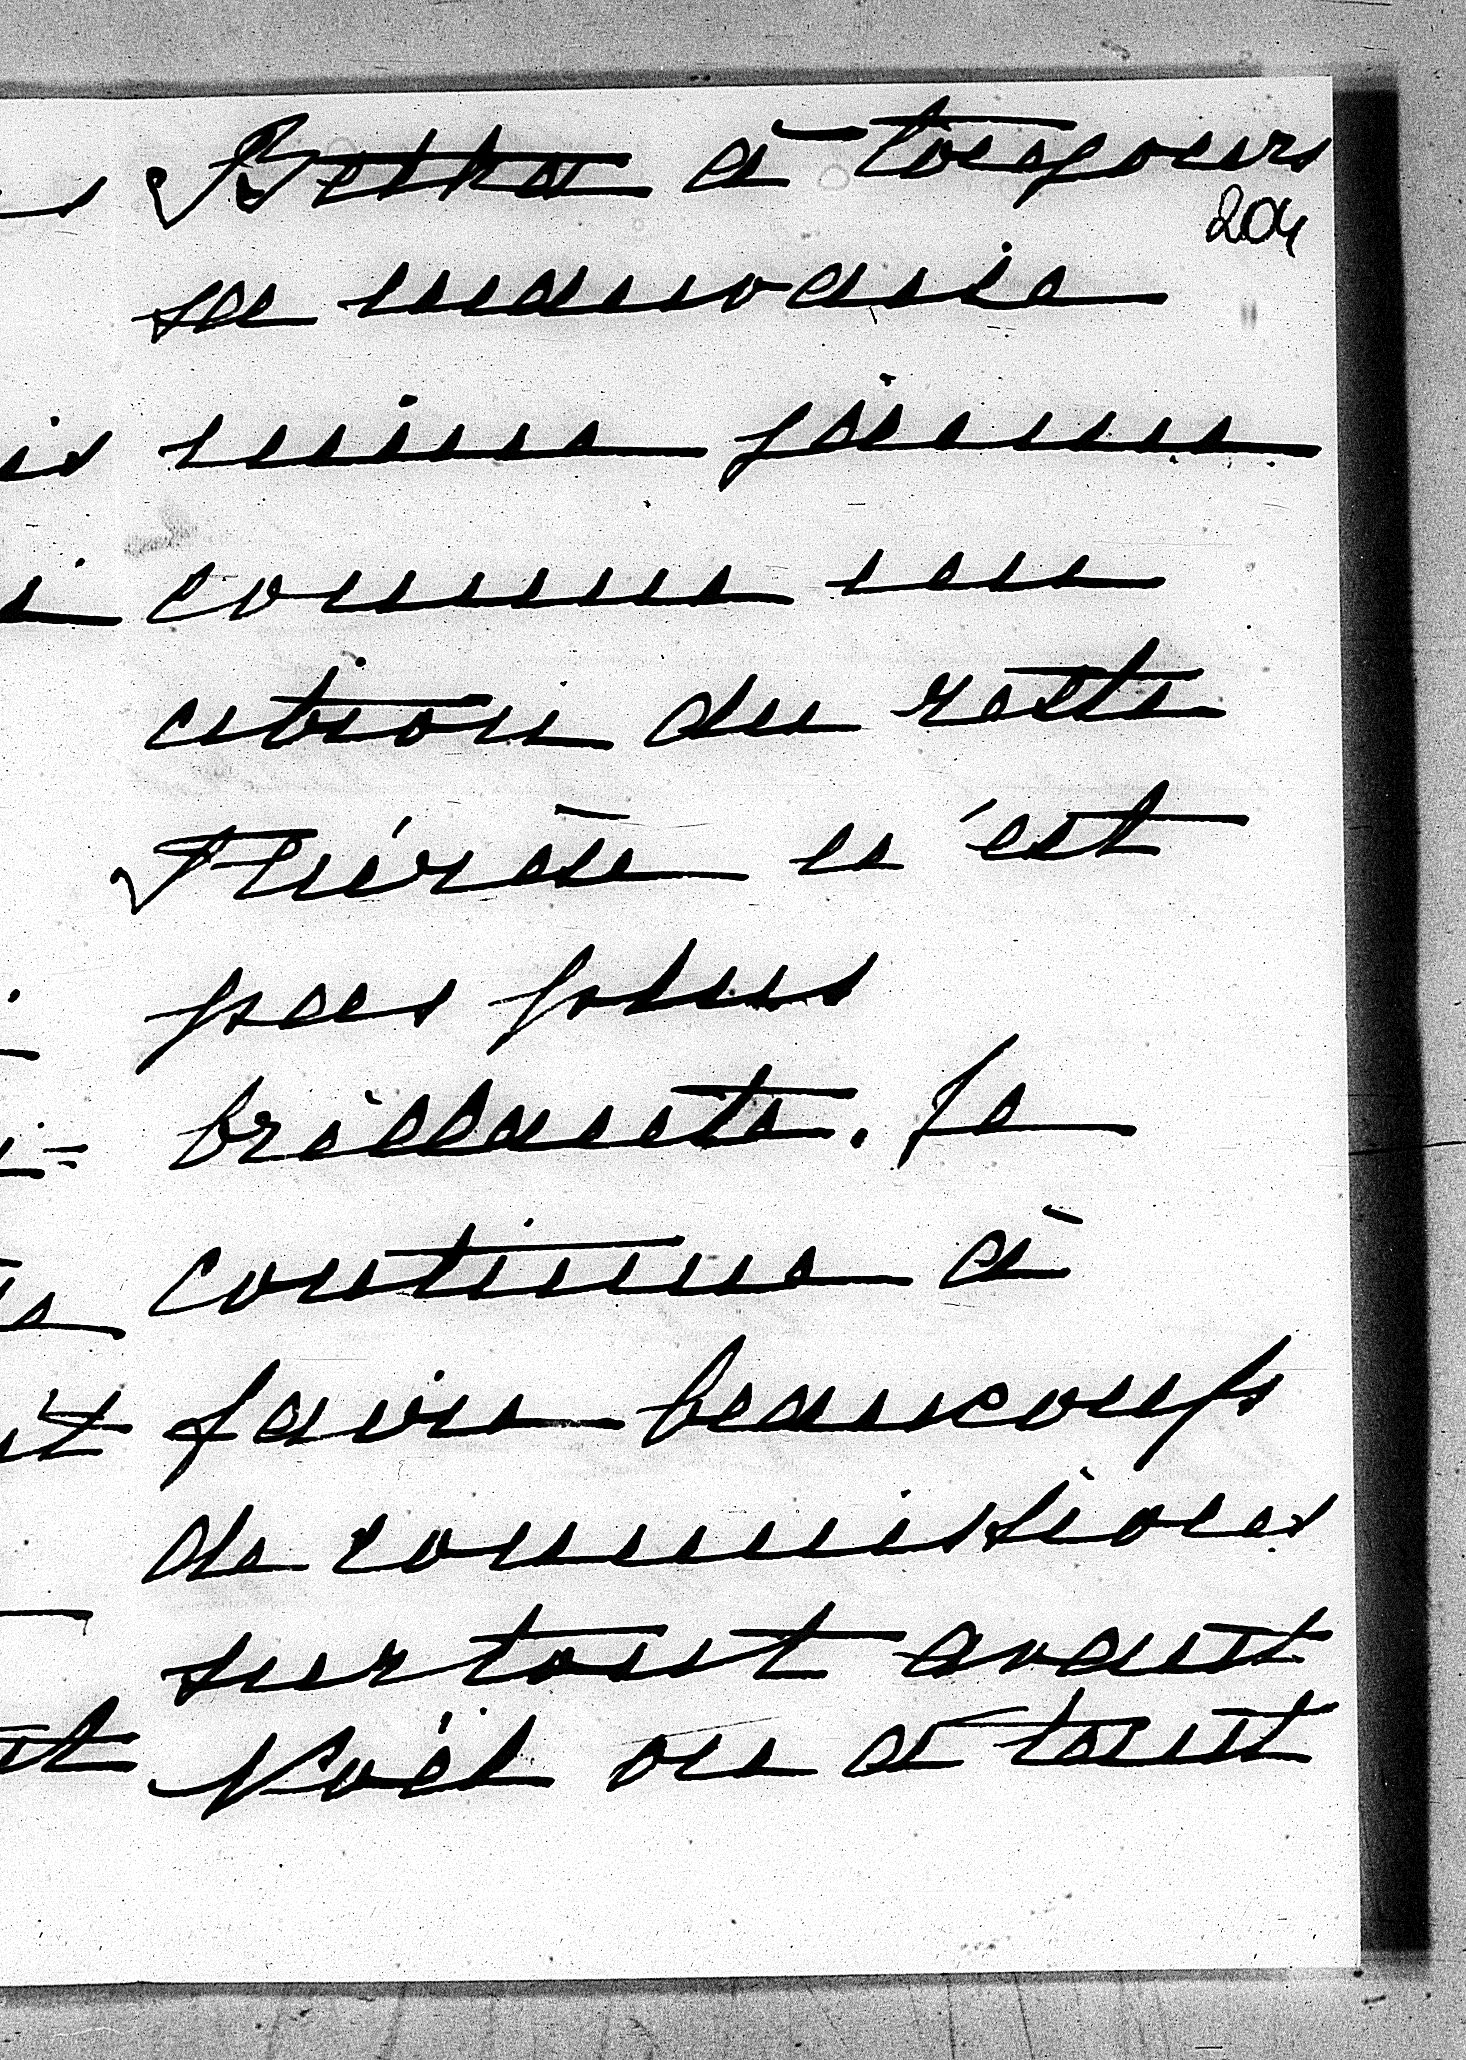 Betka a toujours
204
sa mauvaise
mine jaune
comme un
citron du reste
Thérèse n'est
pas plus
brillante. Je
continue à
faire beaucoup
de commissions
surtout avant
Noël on a tout